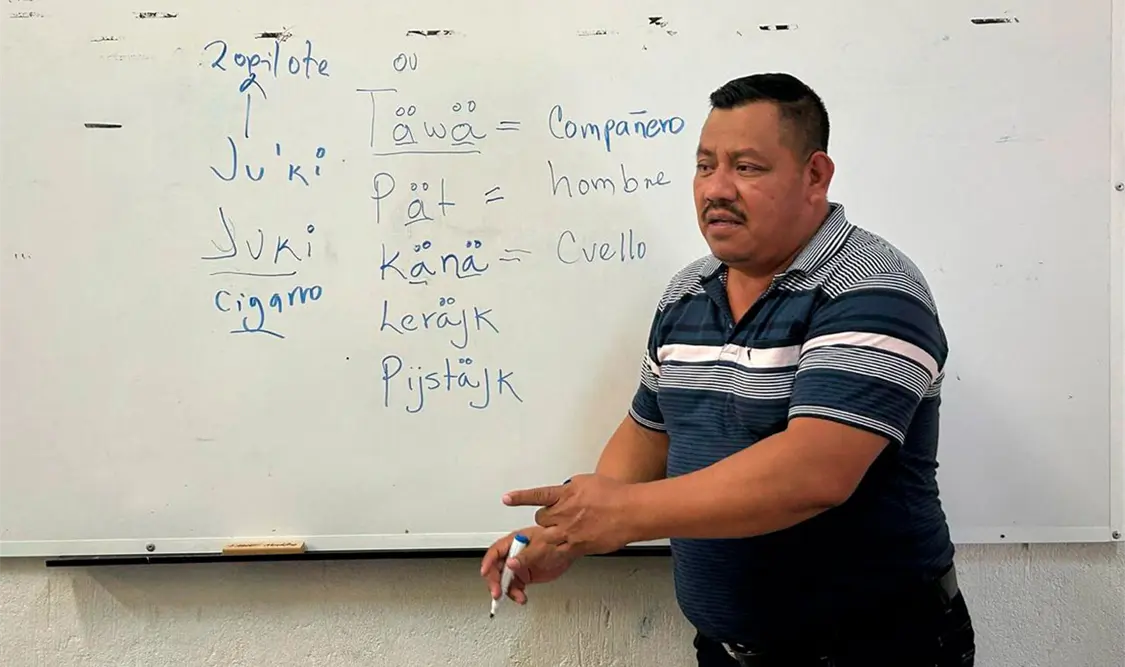 Zopilote
Ju'ki
Juki
cigarro
ou
Täwä = Compañero
Pät = hombre
känä = Cuello
Leräjk
Pijstäjk